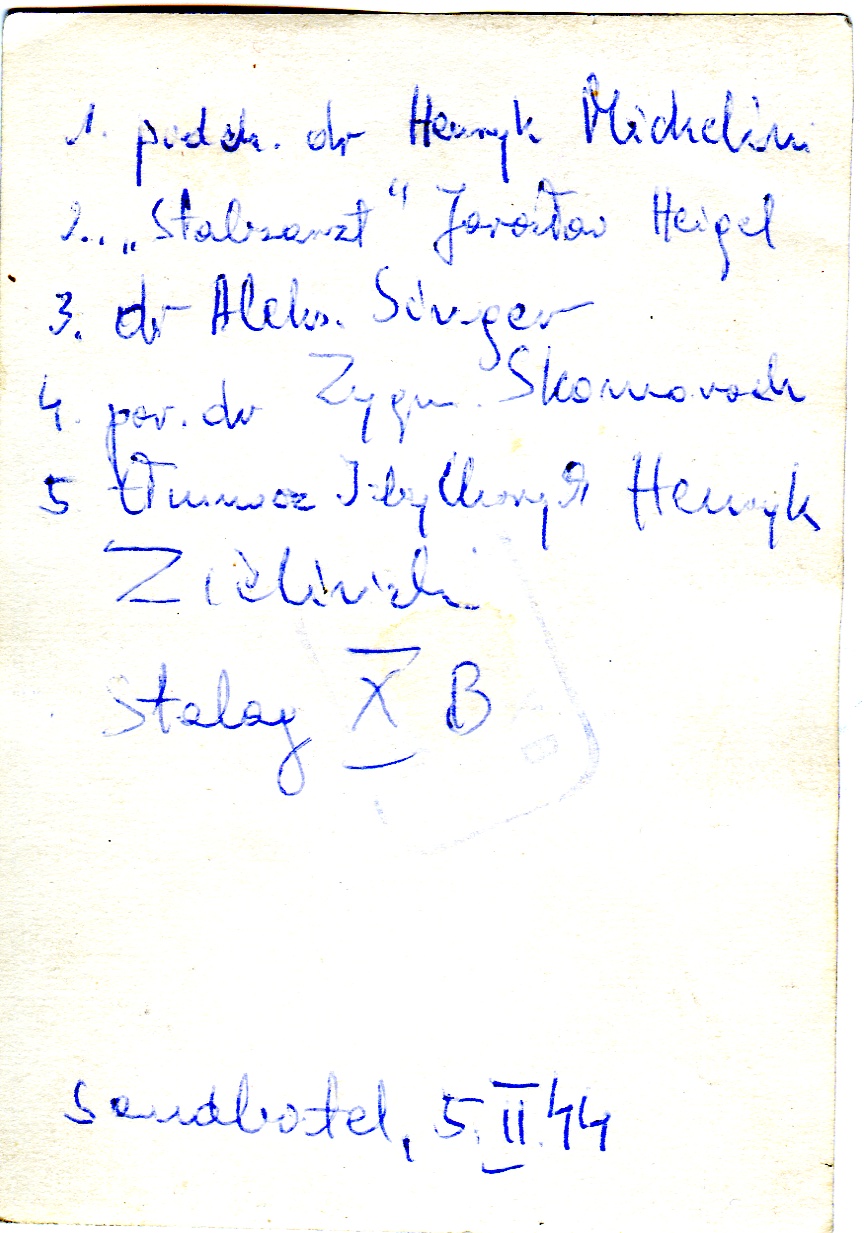 1. podch. dr Henryk Michelini
2. „Stabsarzt" Jarosław Heigel
3. dr Aleks. Singer
4. por. dr Zygm. Skomoroch
5 tłumacz Henryk
Zieliński
Stalag X B
Sandbostel, 5.II.44